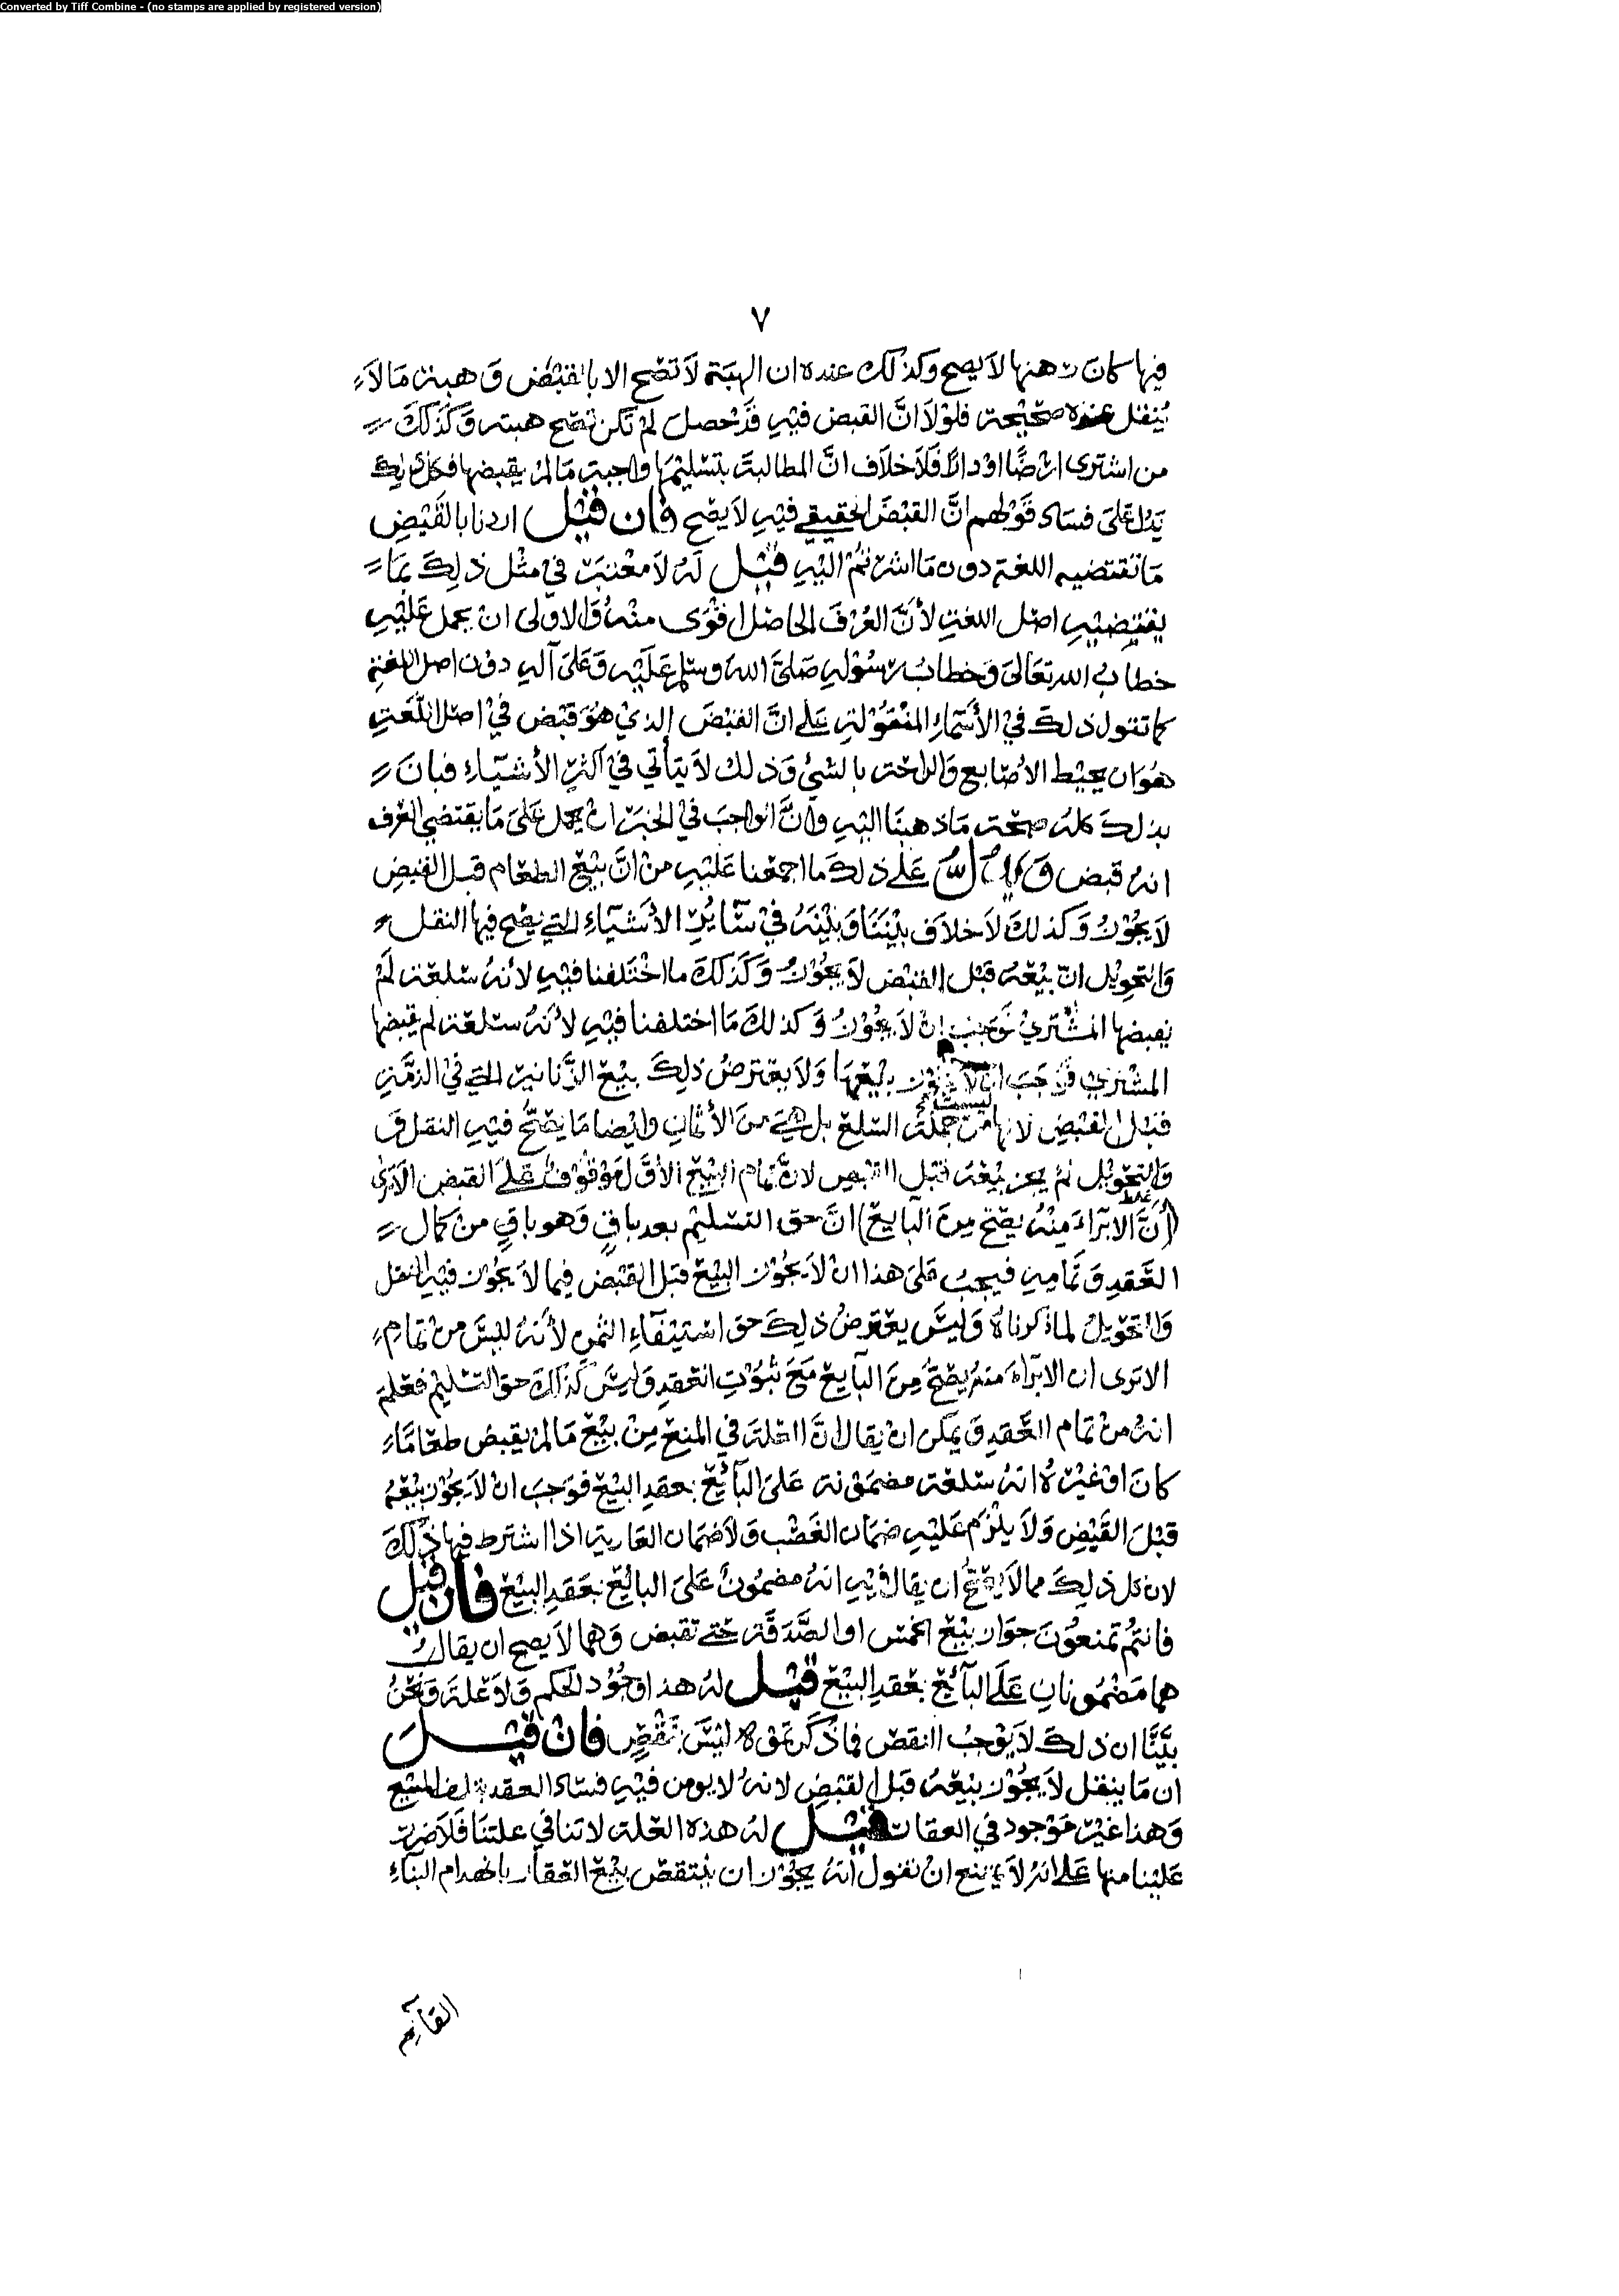 Converted by Tiff Combine - (no stamps are applied by registered version)
٧
فيها كان رهنها لا يصح وكذلك عنده ان الهبة لا تصح الا بالقبض وهبة ما لا
ينقل عنده صحيحة فلولا ان القبض فيه قد حصل لم تكن تصح هبته وكذلك
من اشترى ارضا او دارا فلا خلاف ان المطالبة بتسليمها واجبة ما لم يقبضها فكل ذلك
يدل على فساد قولهم ان القبض الحقيقي فيه لا يصح فان قيل اردنا بالقبض
ما تقتضيه اللغة دون ما اشرتم اليه قيل له لا معتبر في مثل ذلك بما
يقتضيه اصل اللغة لأن العرف الحاصل اقوى منه والاولى ان يحمل عليه
خطاب الله تعالى وخطاب رسوله صلى الله وسلم عليه وعلى آله دون اصل اللغة
كما تقول ذلك في الأسماء المنقولة على ان القبض الذي هو قبض في اصل اللغة
هو ان يحيط الاصابع والراحة بالشيء وذلك لا يتأتى في اكثر الأشياء فبان
بذلك كله صحة ما ذهبنا اليه وان الواجب في الخبر ان يحمل على ما يقتضي العرف
انه قبض و على ذلك ما اجمعنا عليه من ان بيع الطعام قبل القبض
لا يجوز وكذلك لا خلاف بيننا وبينه في سائر الأشياء التي يصح فيها النقل
والتحويل ان بيعه قبل القبض لا يجوز وكذلك ما اختلفنا فيه لأنه سلعة لم
يقبضها المشتري فوجب ان لا يجوز وكذلك ما اختلفنا فيه لأنه سلعة لم يقبضها
المشتري فوجب ان لا يجوز بيعها ولا يعترض ذلك بيع الدنانير التي في الذمة
ليست
قبل القبض لانها من جملة السلع بل هي من الأثمان وايضا ما يصح فيه النقل و
والتحويل لم يجز بيعه قبل القبض لان تمام البيع الأول موقوف على القبض الا ترى
غلط
(أن الابراء منه يصح من البايع) ان حق التسليم بعد باق وهو باق من كمال
العقد وتمامه فيجب على هذا ان لا يجوز البيع قبل القبض فيما لا يجوز فيه النقل
والتحويل لما ذكرناه وليس يعترض ذلك حق استيفاء الثمن لأنه ليس من تمامه
الا ترى ان الابراء منه يصح من البايع مع ثبوت العقد وليس كذلك حق التسليم فعلم
انه من تمام العقد ويمكن ان يقال ان العلة في المنع من بيع ما لم يقبض طعاما
كان او غيره انه سلعة مضمونة على البائع بعقد البيع فوجب ان لا يجوز بيعه
قبل القبض ولا يلزم عليه ضمان الغصب ولا ضمان العارية اذا اشترط فيها ذلك
لان كل ذلك مما لا يصح ان يقال فيه انه مضمون على البائع بعقد البيع فان قيل
فانتم تمنعون جواز بيع الخمس او الصدقة حتى تقبض وهما لا يصح ان يقال
هما مضمونان على البائع بعقد البيع قيل له هذا وجود الحكم ولا علة ونحن
بينا ان ذلك لا يوجب النقض فما ذكرتموه ليس بنقض فان قيل
ان ما ينقل لا يجوز بيعه قبل القبض لانه لا يومن فيه فساد العقد المبيع
وهذا غير موجود في العقار قيل له هذه العلة لا تنافي علتنا فلا ضرر
علينا منها على انه لا يمنع ان نقول انه يجوز ان ينتقض بيع العقار بانهدام البناء
القائم